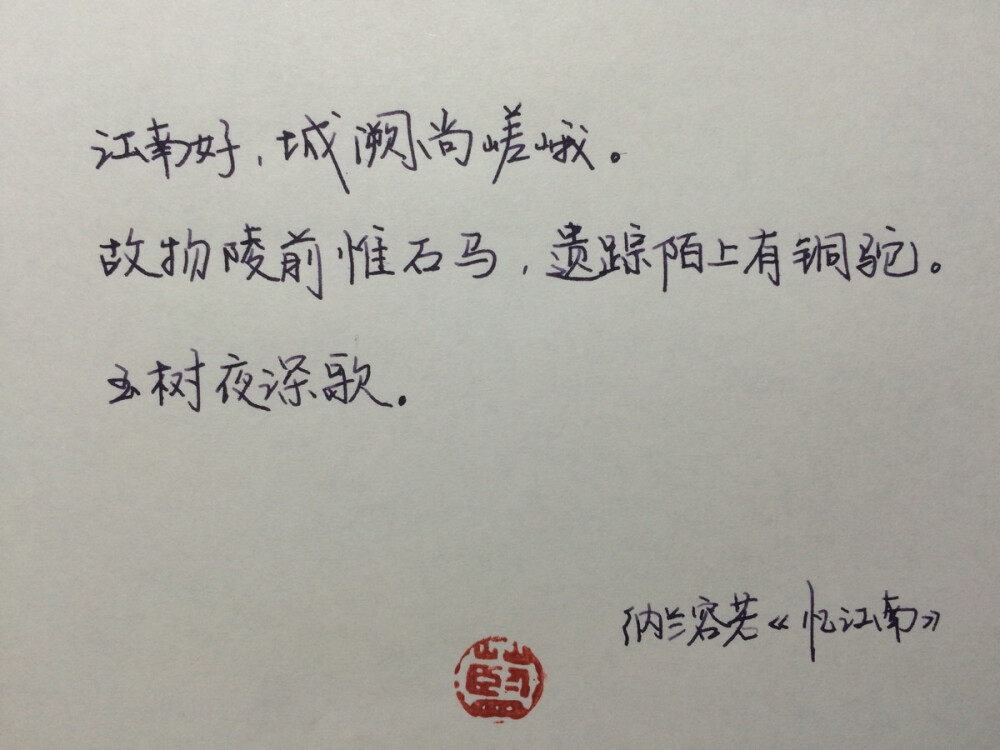 江南好，城阙尚嵯峨。
故物陵前惟石马，遗踪陌上有铜驼。
玉树夜深歌。
纳兰容若《忆江南》
蓝